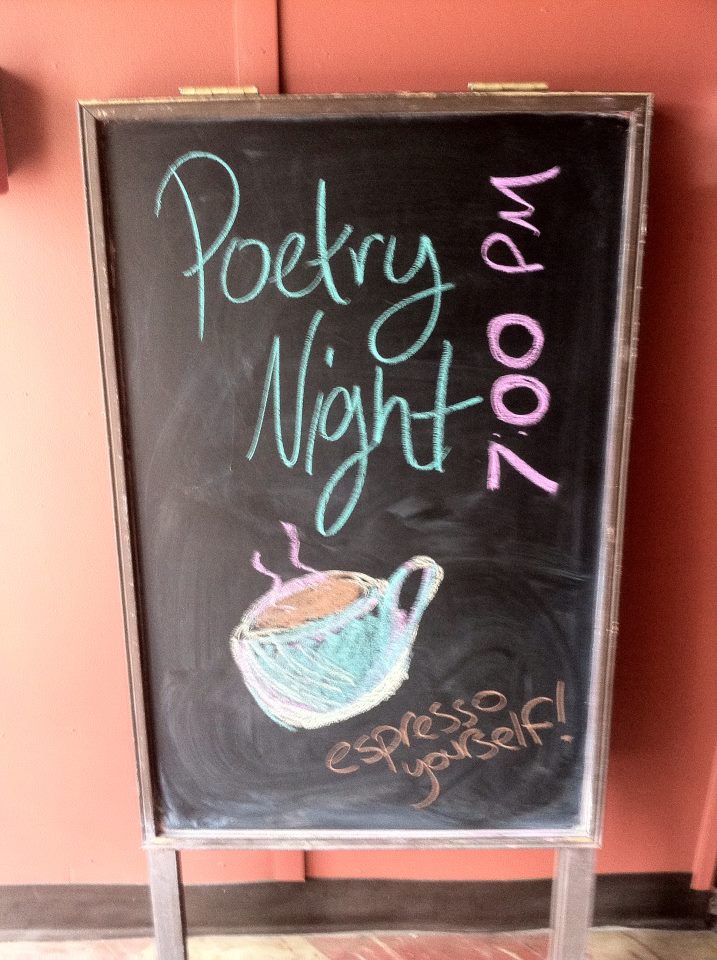 Poetry
Night
7:00 PM
espresso
yourself!